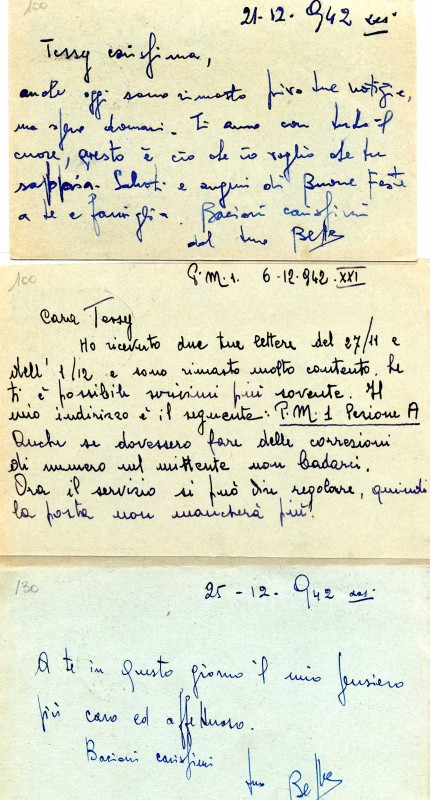 100
21-12-942 XXI
Tessy carissima,
anche oggi sono rimasto privo tue notizie,
ma spero domani. Ti amo con tutto il
cuore, questo è ciò che io voglio che tu
sappia. Saluti e auguri di Buone Feste
a te e famiglia. Bacioni carissimi
dal tuo
100
P.M.1. 6-12-942-XXI
Cara Tessy
Ho ricevuto due tue lettere del 27/11 e
dell' 1/12 e sono rimasto molto contento. Se
ti è possibile scrivimi più sovente. Il
mio indirizzo è il seguente: P.M.1 Sezione A
Anche se dovessero fare delle correzioni
di numero nel mittente non badarci.
Ora il servizio si può dir regolare, quindi
la posta non mancherà più!
130
25-12-942
A te in questo giorno il mio pensiero
più caro ed affettuoso.
Bacioni carissimi
tuo